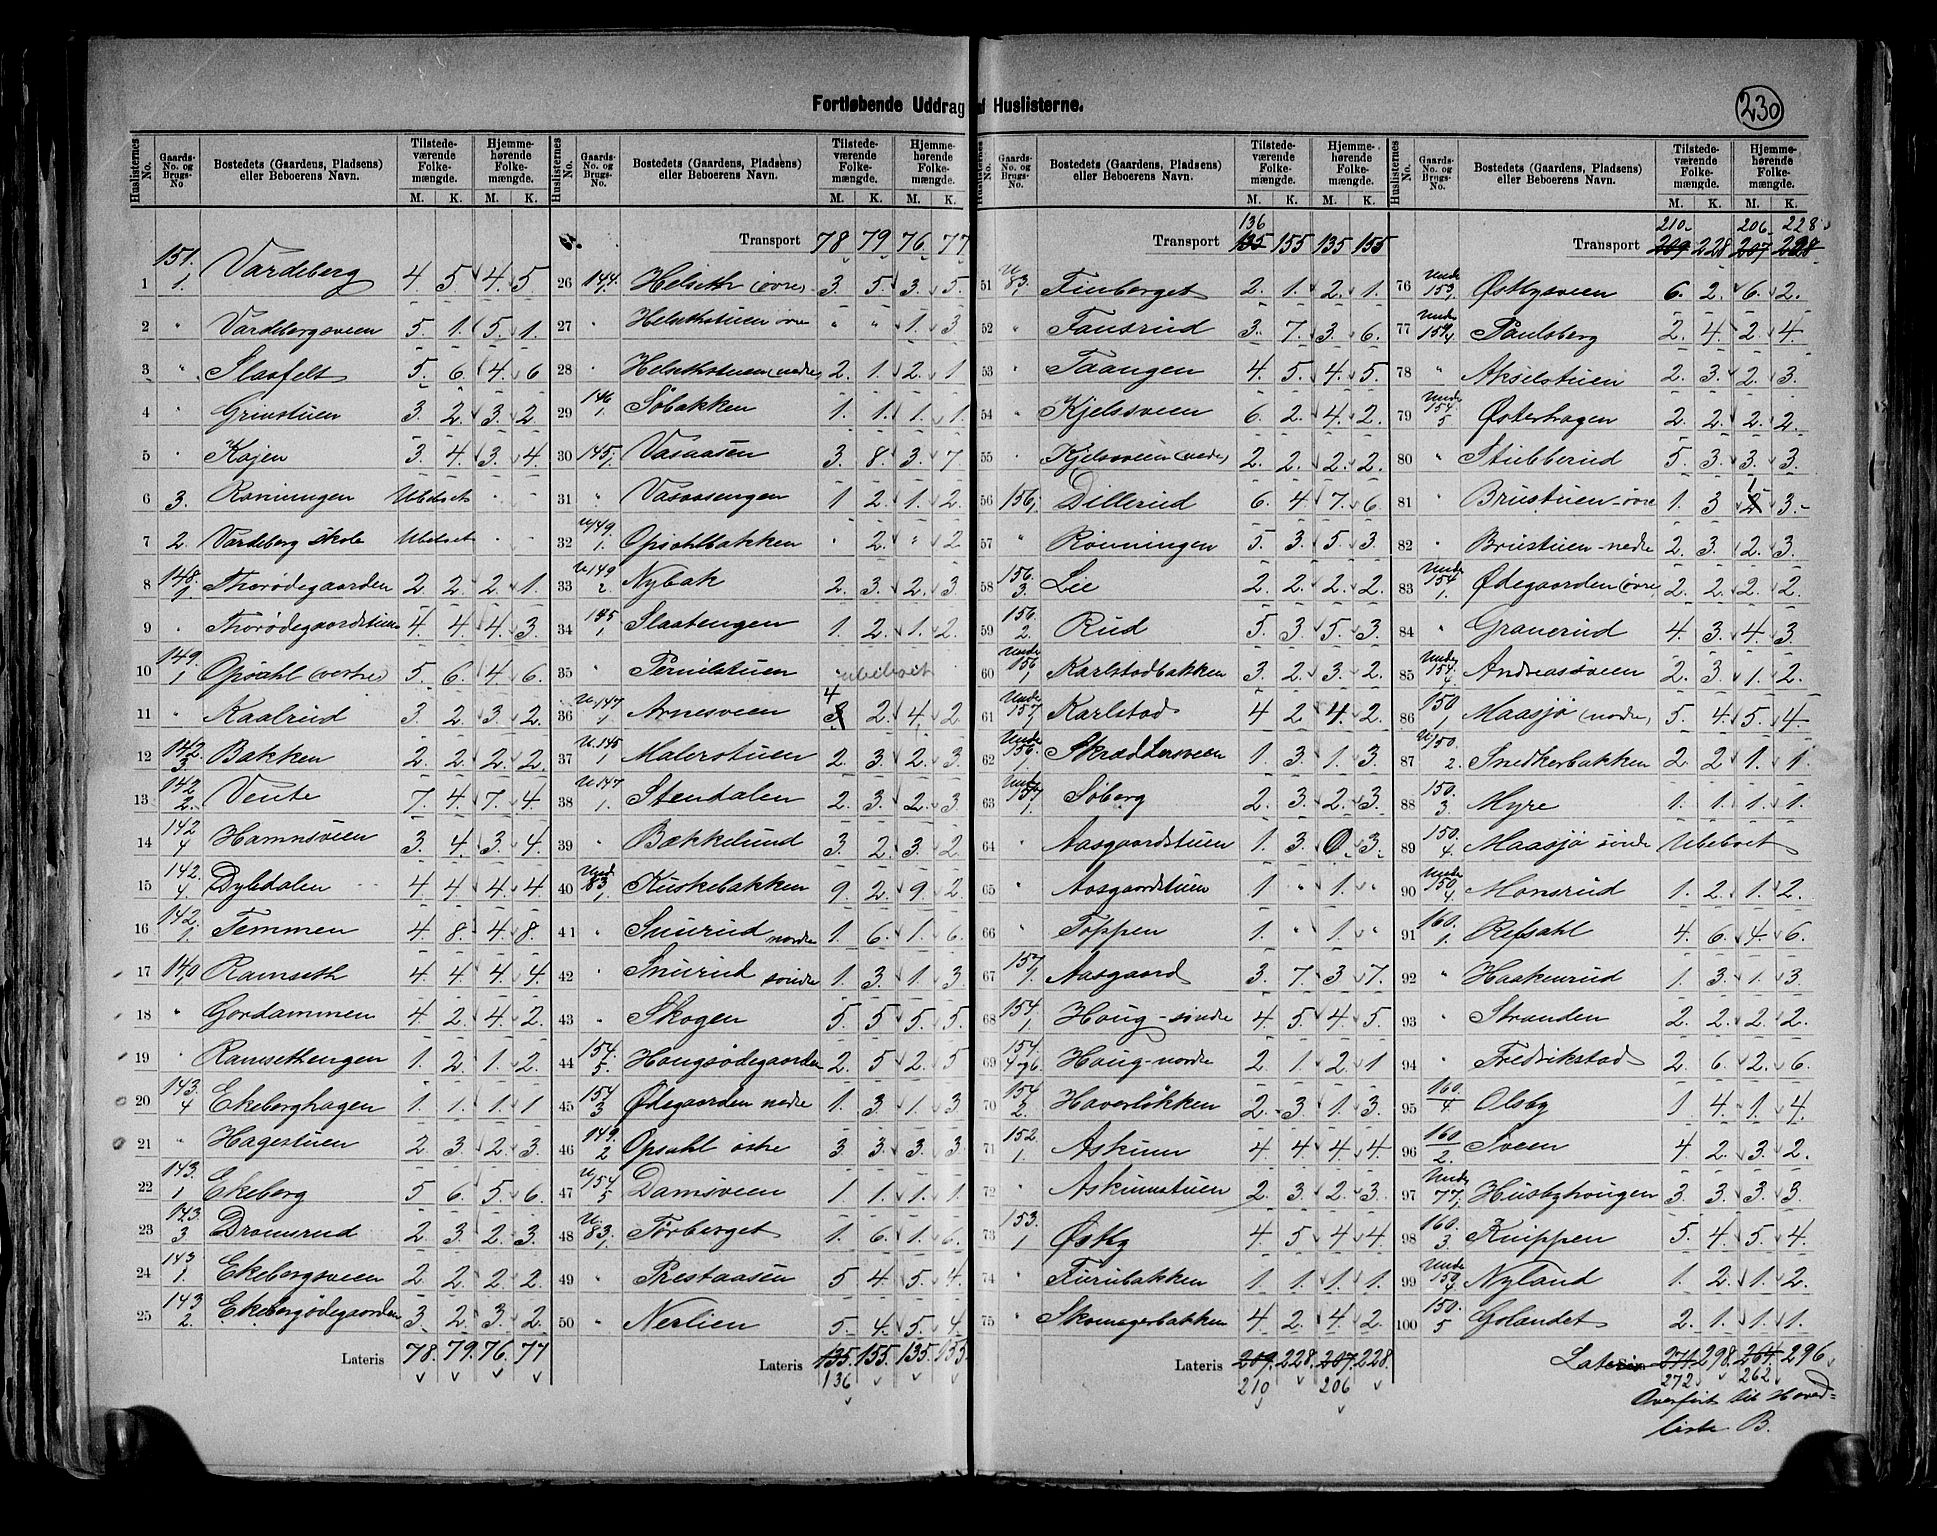 Fortløbende Uddrag af Huslisterne.
230
Huslisternes No. Gaards-No. og Brugs-No. Bostedets (Gaardens, Pladsens) eller Beboerens Navn. Tilstedeværende Folkemængde. M. K. Hjemmehørende Folkemængde. M. K.
1 151. 1. Vardeberg 4 5 4. 5.
2 " Vardebergsveen 5. 1. 5. 1.
3 " Slaafelt 5. 6. 4. 6
4 " Grinstuen 3. 2. 3. 2.
5 " Kajen 3. 4. 3. 4.
6 3. Rønningen Ubeboet
7 2. Vardeberg skole Ubeboet
8 148. 1 Thorødegaarden 2. 2. 2. 1.
9 " Thorødegaardstuen 4. 4. 4. 3.
10 149. 1 Opsahl (vestre) 5. 6. 4. 6.
11 " Kaalrud 3. 2. 3. 2.
12 142. 3 Bakken 2. 2. 2. 2.
13 142 2. Vente 7. 4. 7. 4.
14 142 4 Hamnsveen 3. 4. 3. 4.
15 142. 4. Dybdalen 4. 4. 4. 4.
16 142. 1. Temmen 4. 8. 4. 8.
17 140 Ramseth 4. 4. 4. 4.
18 " Gordammen 4. 2. 4. 2.
19 " Ramsethengen 1. 2. 1. 2.
20 143. 4 Ekeberghagen 1. 1. 1. 1
21 " Hagestuen 2 3. 2. 3.
22 143. 1 Ekeberg 5 6. 5. 6.
23 143. 3 Dromsrud 2. 3. 2. 3.
24 143 1. Ekebergsveen 2. 2. 2. 2.
25 143 2. Ekebergødegaarden 3. 2. 3. 2.
Lateris 78. 79. 76. 77
Huslisternes No. Gaards-No. og Brugs-No. Bostedets (Gaardens, Pladsens) eller Beboerens Navn. Tilstedeværende Folkemængde. M. K. Hjemmehørende Folkemængde. M. K.
Transport 78 79 76 77
26 144. 1. Helseth (øvre) 3. 5. 3. 5.
27 " Helsethstuen øvre " " 1. 3
28 " Helsethstuen (nedre) 2. 1. 2. 1
29 146 1. Søbakken 1. 1. 1. 1.
30 145. 1 Vasaasen 3. 8. 3. 7.
31 " Vasaasengen 1 2. 1. 2.
32 U/149. 1. Opsahlbakken " 2. " 2
33 U. 149 2 Nybak 2. 3. 2. 3
34 145 1 Slaatengen 1. 2. 1. 2.
35 " Pernilstuen ubeboet
36 U. 147 1 Arnesveen 4 3 2. 4. 2
37 U. 145 1 Malerstuen 2 3 2. 3.
38 U. 147 1. Stendalen 2. 3. 2. 3
39 " Bækkelund 3. 2. 3. 2
40 Und. 83, 1 Kuskebakken 9. 2. 9. 2
41 " Snurud nordre 1. 6. 1. 6.
42 " Snurud søndre 1. 3. 1. 3
43 " Skogen 5. 5. 5. 5.
44 154. 5. Hougsødegaarden 2. 5 2. 5
45 154 3 Ødegaarden nedre 1. 3. 1. 3.
46 149. 2 Opsahl østre 3 3. 3. 3.
47 U. 154 5 Damsveen 1. 1. 1. 1.
48 U. 83, 1 Tørberget 1. 6. 1. 6.
49 " Prestaasen 5 4. 5. 4.
50 " Nerlien 5. 4. 5. 4.
Lateris 135. 155. 135. 155.
136
Huslisternes No. Gaards-No. og Brugs-No. Bostedets (Gaardens, Pladsens) eller Beboerens Navn. Tilstedeværende Folkemængde. M. K. Hjemmehørende Folkemængde. M. K.
136
Transport 135 155 135 155
51 U 83, 1 Finberget 2. 1. 2. 1.
52 " Fansrud 3. 7. 3. 6.
53 " Taangen 4. 5. 4. 5.
54 " Kjelsveen 6. 2. 4. 2.
55 " Kjelsveen (nedre) 2. 2. 2. 2.
56 156, 1 Dillerud 6. 4 7. 6.
57 " Rønningen 5. 3. 5. 3.
58 156. 3. Lee 2. 2. 2. 2.
59 156. 2. Rud 5. 3. 5. 3.
60 Unde 156 1 Karlstadbakken 3. 2. 3. 2.
61 Unde 157 1 Karlstad 4 2 4. 2.
62 Unde 156. 1 Skræddersveen 1. 3. 1. 3.
63 Unde 157 1. Søberg 2. 3. 2. 3.
64 " Aasgaardstuen 1. 3. 0. 3.
65 " Aasgaardstuen 1 " 1. "
66 " Toppen 1. " 1. "
67 157 1. Aasgaard 3. 7. 3 7.
68 154, 1 Houg - søndre 4 5. 4 5.
69 154 4 og 6 Houg - nordre 2 1. 2. 1
70 154 2 Haverløkken 2. 3. 1 3.
71 152. 1 Askum 4. 4. 4. 4
72 " Askumstuen 2. 3. 2. 3.
73 153. 1 Østby 4. 5 4 4.
74 " Furubakken 1. 1. 1. 1.
75 " Skomagerbakken 4 2. 4. 2.
Lateris 209. 228. 207. 228.
210 206
Huslisternes No. Gaards-No. og Brugs-No. Bostedets (Gaardens, Pladsens) eller Beboerens Navn. Tilstedeværende Folkemængde. M. K. Hjemmehørende Folkemængde. M. K.
210. 206. 228
Transport 209 228 207 228
76 Unde 153, 1 Østbysveen 6. 2. 6. 2.
77 Unde 154, 4 Paulsberg 2. 4. 2. 4.
78 " Akselstuen 2. 3. 2. 3.
79 Unde 154. 5 Østerhagen 2. 2. 2. 2.
80 " Stubberud 5. 3. 3. 3.
81 " Brustuen - øvre 1. 3 1 3.
82 " Brustuen - nedre 2. 3. 2. 3.
83 Unde 154. 1. Ødegaarden (øvre) 2. 2. 2. 2.
84 " Granerud 4. 3. 4. 3.
85 Unde 154. 4. Andreassveen 2. 3. 1. 2.
86 150 1 Maasjø (nordre) 5. 4. 5. 4
87 U/150. 2. Snedkerbakken 2 2 1. 1.
88 150. 3. Myre 1. 1. 1. 1.
89 150. 4. Maasjø søndre Ubeboet
90 Unde 150. 4. Monsrud 1. 2. 1. 2.
91 160 1. Refsahl 4. 6. 4. 6.
92 " Haakenrud 1. 3. 1. 3
93 " Stranden 2. 2. 2. 2.
94 " Fredrikstad 2 6. 2. 6
95 160 4 Olsby 1 4. 1. 4.
96 160 2. Sveen 4 2. 3. 2.
97 Unde 77, 1 Husbyhougen 3. 3. 3. 3.
98 160. 3 Knippen 5. 4. 5. 4
99 Unde 150 4 Nyland 1. 2. 1. 2.
100 150. 5 Golandet 2. 1. 1. 1.
Lateris 271. 298. 264. 296
272 262
Overført til Hovedliste B.